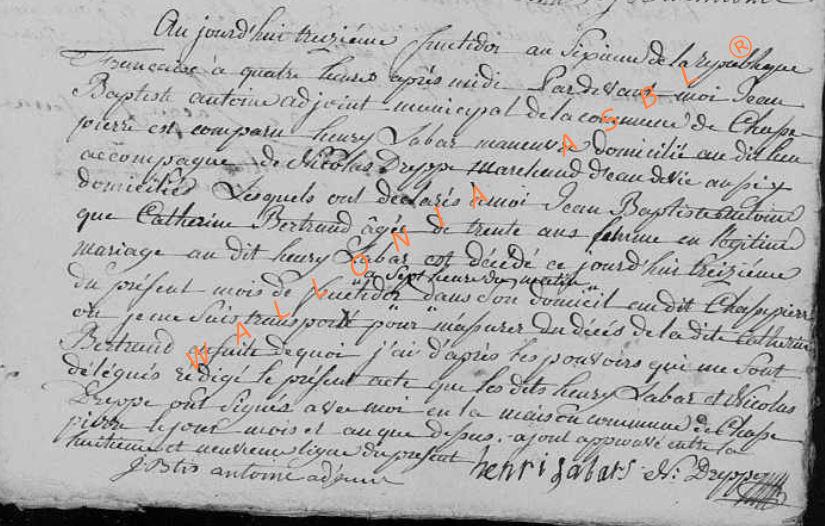 Aujourd'huit treizième fructidor an Sixieme de la republique
Francaise à quatre heures après midi Pardevant moi Jean
Baptiste antoine adjoint municipal de la commune de Chape
pierre est comparu henry Labar maneuvre domicilié au dit lieu
accompagné de Nicolas Dreppe marchand d'eau de vie au
domiciliés Lesquels ont déclarés à moi Jean Baptiste antoine
que Catherine Bertrand âgée de trente ans femme en légitime
mariage au dit henry Labar est décédé ce jourd'hui treizième
à Sept heure du matin
du présent mois de fructidor dans son domicil audit Chapepierre
où je me suis transporté pour m'assurer du décès de la dite Catherine
Bertrand ensuite dequoi j'ai d'après les pouvoirs qui me sont
délégués rédigé le présent acte que les dits henry Labar et Nicolas
Dreppe ont signés avec moi en la maison commune de Chape
pierre le jour mois et an que dessus. ajout approuvé entre la
huitieme et neuvieme ligne du present
J. Bte antoine adjoint henri Labars N: Dreppe
WALLONIA ASBL ®